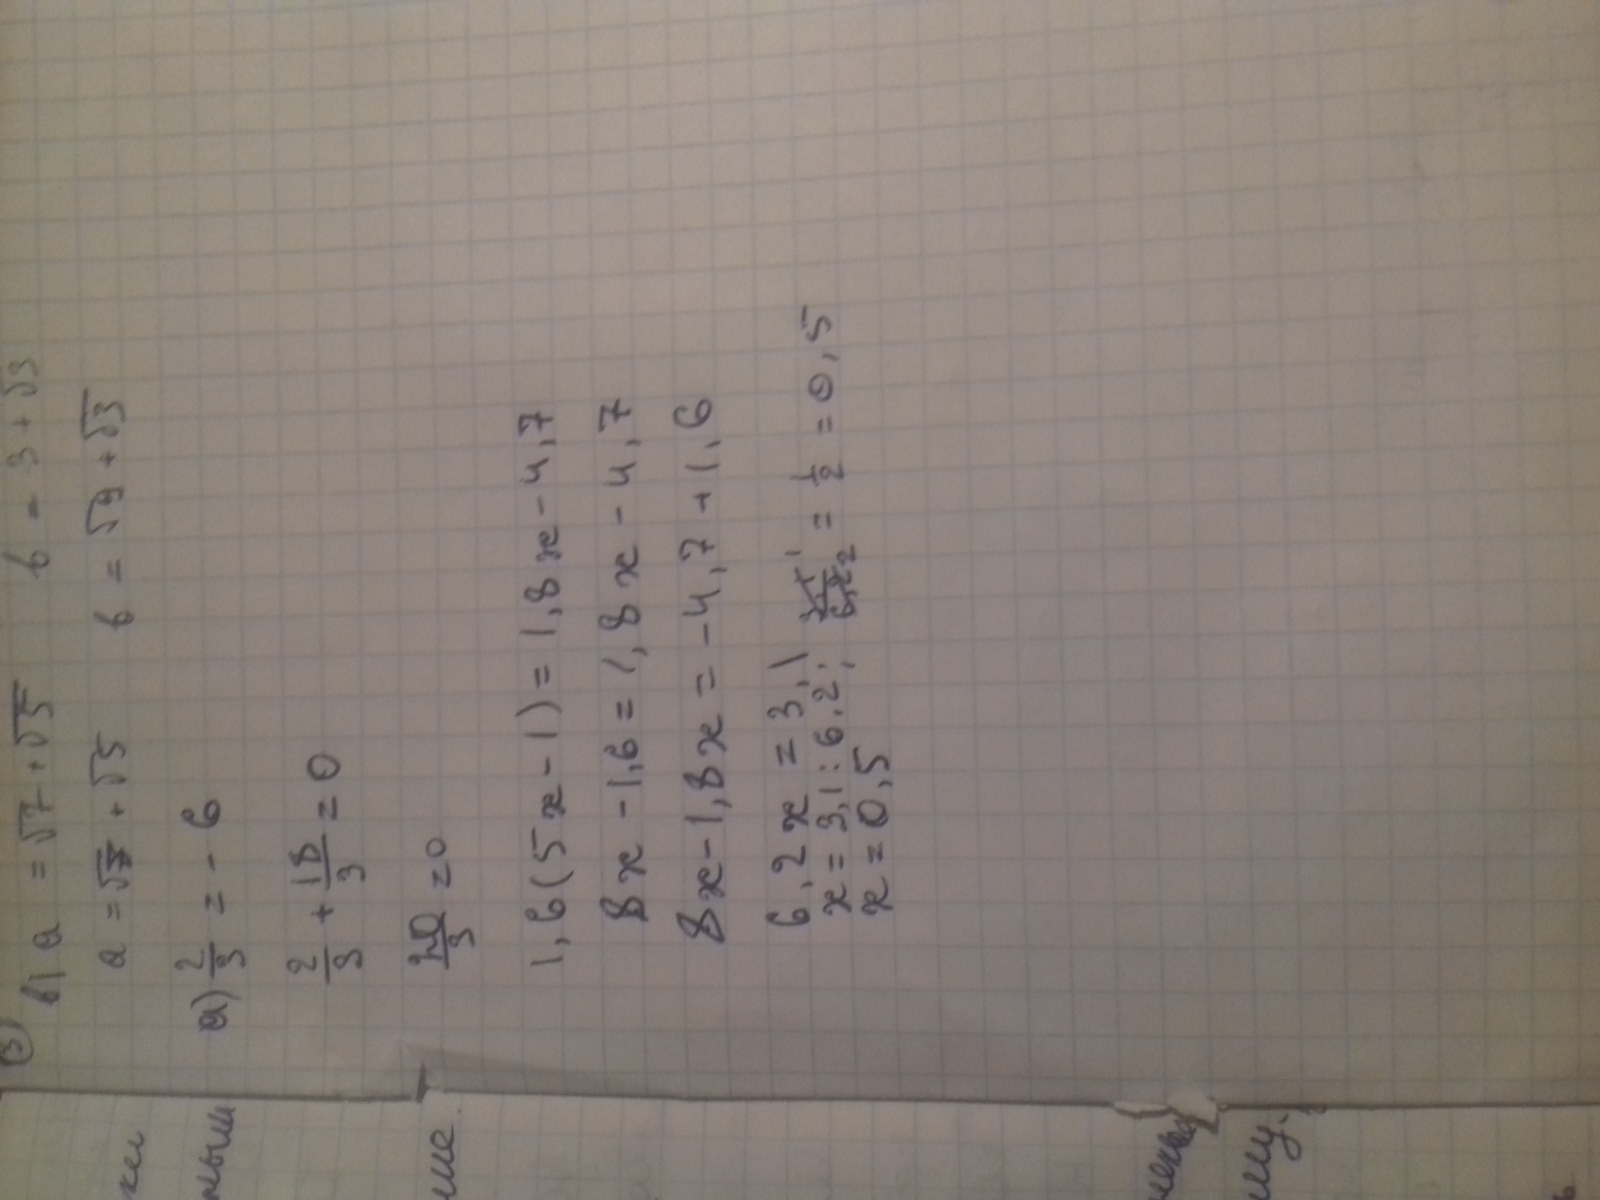 ③ в) a = √7 + √5 b = 3 + √3
a = √7 + √5 b = √9 + √3
а) 2/3 = - 6
2/3 + 18/3 = 0
20/3 = 0
1,6(5x-1) = 1,8x - 4,7
8x - 1,6 = 1,8x - 4,7
8x - 1,8x = -4,7 + 1,6
6,2x = 3,1
x = 3,1 : 6,2; 3,1/6,2 = 1/2 = 0,5
x = 0,5
ки
ным
ние
му.